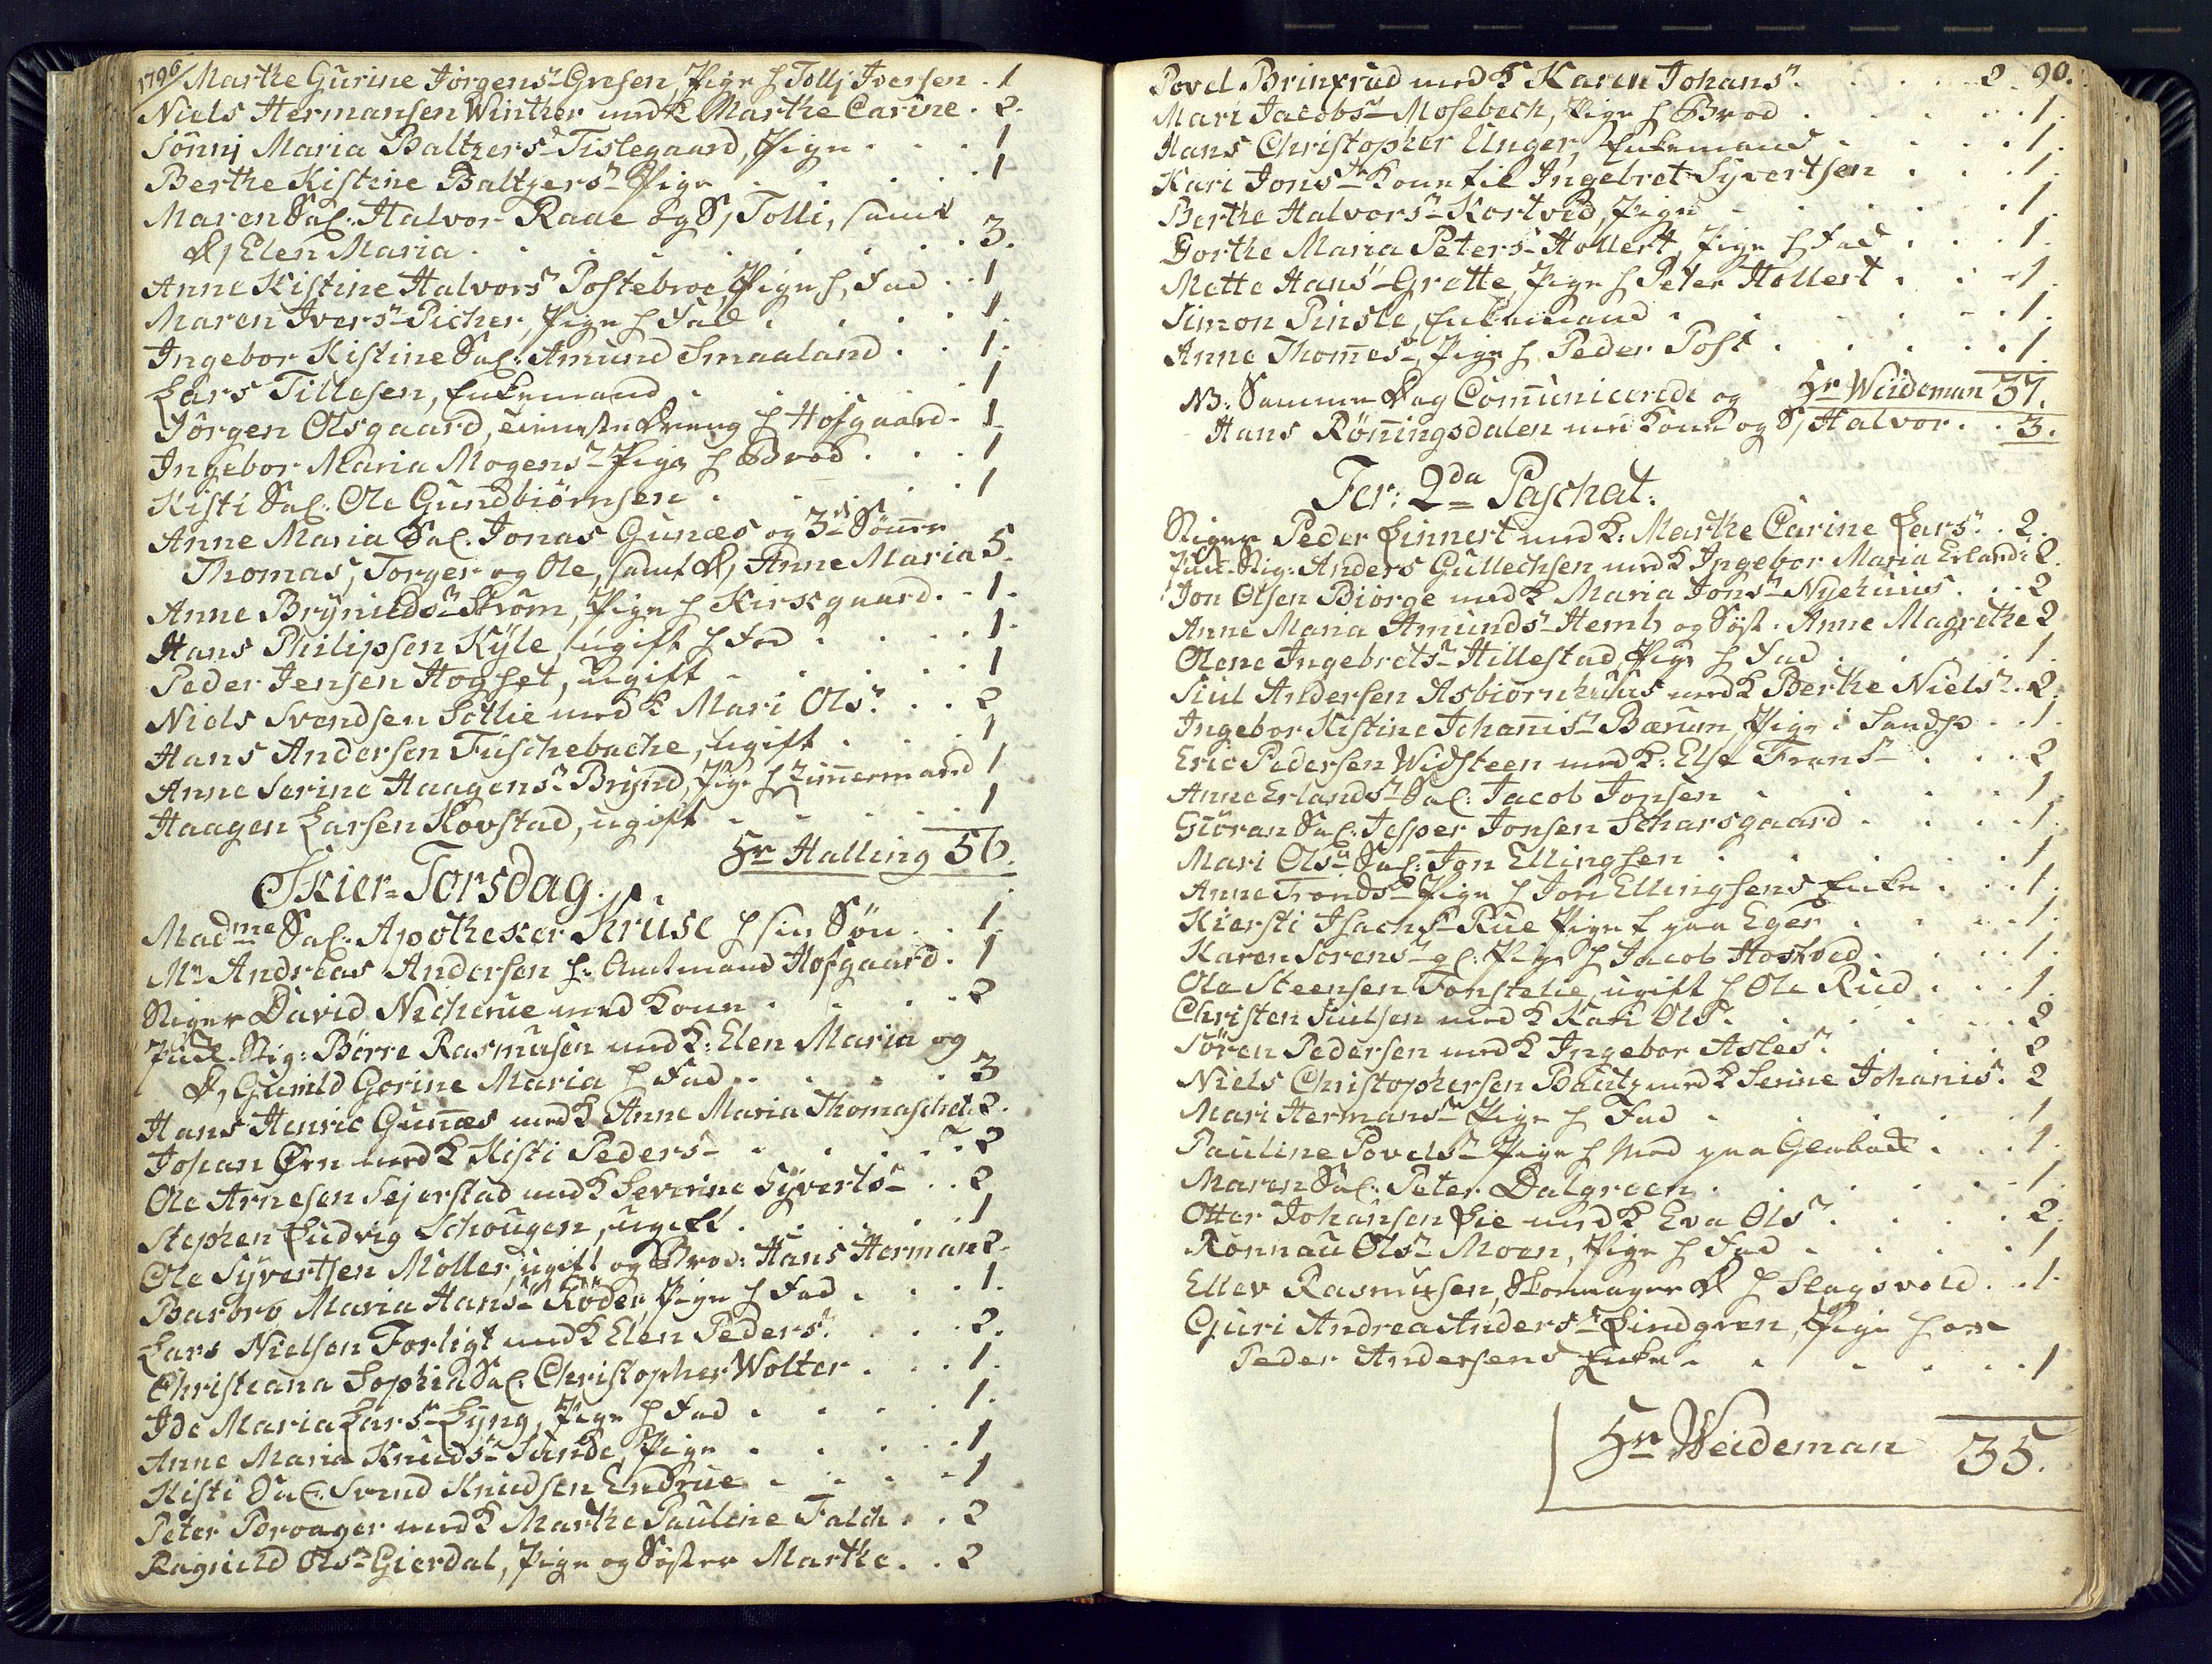 1796/ Marthe Gurine Jörgensn Gresen, Pige h Tollj Iversen . 1
Niels Hermansen Winther med K Marthe Carine . 2.
Sönnj Maria Baltzersd Tislegaard, Pige . . . 1
Berthe Kistine Baltzersn Pige . . . . 1
Maren Sal. Halvor Raae og S, Tolli, samt
D, Elen Maria . . . . . . . . 3.
Anne Kistine Halvorsn Postebroe, Pige h. Fad . . 1
Maren Iversn Picher, Pige h Fad . . . . 1.
Ingebor Kistine Sal. Amund Smaaland . . 1.
Lars Tillesen, Enkemand . . . . 1
Jörgen Olsgaard, tieneste Dreng h Hofgaard . 1
Ingebor Maria Mogensn Pige h Brod . . . 1
Kisti Sal. Ole Gundbiörnsen . . . . 1
Anne Maria Sal. Jonas Gunæs og 3de Sönner
Thomas, Torger og Ole, samt D, Anne Maria 5.
Anne Brynildsn Ström, Pige h Kirkgaard . . 1.
Hans Philipsen Kyle, ugift h Fad . . . . 1.
Peder Jensen Hogset, ugift . . . . . 1
Niels Svendsen Sollie med K Mari Olsn . . . 2
Hans Andersen Fuschebeche, ugift . . . 1
Anne Serine Haagensn Brynd, Pige h Zimmermand 1
Haagen Larsen Kovstad, ugift . . . . 1
Hr Halling 56.
Skier=Torsdag.
Madme Sal. Apotheker Kruse h sin Sön . . 1.
Mr Andreas Andersen h. Amtmand Hofgaard . 1
Stiger David Nicherue med Kone . . . . 2
Und. Stig: Börre Rasmusen med K: Elen Maria og
D, Gunild Gorine Maria h Fad . . . . 3
Hans Henric Gunæs med K Anne Maria Thomaschel. 2.
Johan Örn med K Kisti Pedersn . . . . 2
Ole Arnesen Sejerstad med K Severine Syvertsn . . 2
Stephen Ludvig Schougen, ugift . . . . 1
Ole Syvertsen Möller, ugift og Brod: Hans Herman 2.
Barbro Maria Hansn Röder, Pige h Fad . . . 1.
Lars Nielsen Forligt med K Elen Pedersn . . . 2.
Christiana Sophia Sal. Christopher Wolter . . . 1.
Ide Maria Larsn Lyng, Pige h Fad . . . . 1.
Anne Maria Knudsn Sunde, Pige . . . . 1
Kisti Sal. Svend Knudsen Endrue . . . . 1
Peter Broager med K Marthe Pauline Falch . . 2
Ragnild Olsn Gierdal, Pige og Söster Marthe . . 2
Povel Brinxrud med K Karen Johansn . . . 2 90.
Mari Jacobsn Mosebech, Pige h Brod . . . . . 1.
Hans Christopher Unger, Enkemand . . . . 1.
Kari Jonsn Kone til Ingebret Syvertsen . . . 1.
Berthe Halvorsn Kortved, Pige . . . . . 1.
Dorthe Maria Petersn Hollert, Pige h Fad . . . 1.
Mette Hansn Grette, Pige h Peter Hollert . . . 1.
Simon Pinsle, Enkemand . . . . . . 1.
Anne Thomesn, Pige h Peder Post . . . . . 1.
NB. Samme Dag Comunicerede og Hr Weideman 37.
Hans Röningsdalen med Kone og S, Halvor . . 3.
Fer: 2da Paschat:
Stiger Peder Linnert med K: Marthe Carine Larsn . 2.
Und. Stig: Anders Gullechsen med K Ingebor Maria Erlands: 2.
Jon Olsen Biörge med K Maria Jonsn Nyehuus . . 2
Anne Maria Amundsn Hemb og Söst. Anne Magrethe 2
Olene Ingebretsn Hillestad, Pige h Fad . . . . 1.
Siul Andersen Asbiörnhuus med K Berthe Nielsn . 2.
Ingebor Kistine Johanisn Bærum, Pige i Sandsv . . 1.
Eric Pedersen Widsteen med K: Else Fransn . . . 2
Anne Erlandsn Sal: Jacob Jonsen . . . . . 1.
Giöran Sal. Jesper Jonsen Scharsgaard . . . . 1.
Mari Olsn Sal: Jon Ellingsen . . . . . . 1
Anne Trondsn Pige h Jon Ellingsens Enke . . . 1.
Kiersti Isachsn Rue Pige f paa Eger . . . . 1.
Karen Sorensn gl: Pige h Jacob Hostved . . . . 1.
Ole Steensen Fonstelie, ugift h Ole Rud . . . 1.
Christen Siulsen med K Kari Olsn . . . . . 2
Sören Pedersen med K Ingebor Aslesn . . . . 2
Niels Christophersen Bautz med K Serine Johanisn 2
Mari Hermansn Pige h Fad . . . . . 1
Pauline Povelsn Pige h Mod paa Glabak . . . 1.
Maren Sal: Peter Dalgreen . . . . . . 1.
Otter Johansen Lie med K Eva Olsn . . . . 2.
Rönnau Olsn Moen, Pige h Fad . . . . . 1
Ellev Rasmusen, Skomager D h Slagsvold . . 1.
Guri Andrea Andersn Lindgren, Pige hos
Peder Andersens Enke . . . . . . 1
Hr Weideman 35.